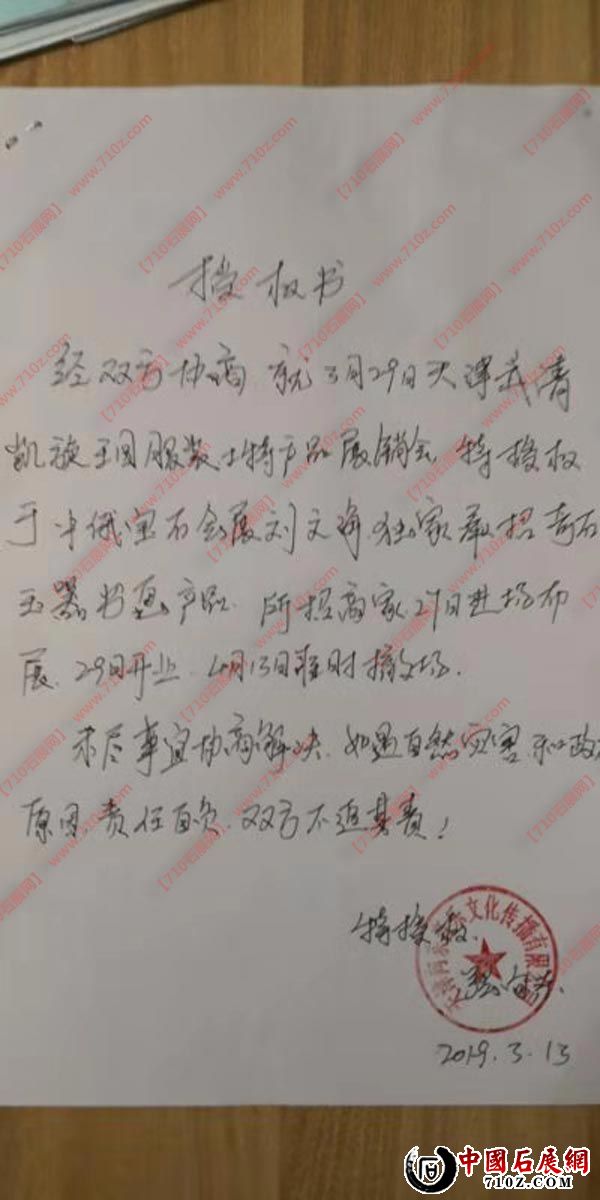 授权书
经双方协商 就3月29日天津武清
凯旋王国服装土特产品展销会, 特授权
于中俄宝石会展刘文海独家承招奇石
玉器书画产品. 所招商家27日进场布
展. 29日开业. 4月13日准时撤场.
未尽事宜协商解决. 如遇自然灾害和政
原因. 责任自负. 双方不追其责!
特授权.
文化传播有限
2019.3.13
【710石展网】 www.710z.com
中國石展網
710Z.COM